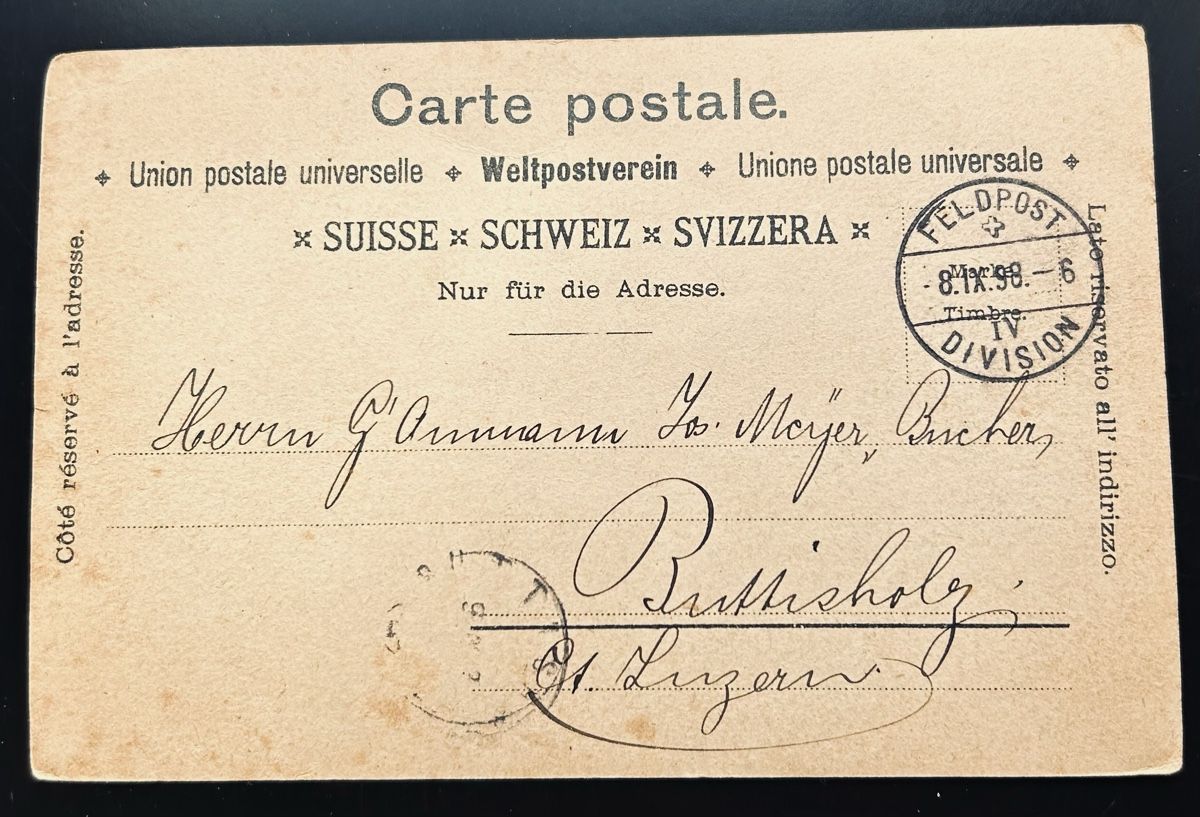 Carte postale.
Union postale universelle Weltpostverein Unione postale universale
SUISSE SCHWEIZ SVIZZERA
Nur für die Adresse.
Côté réservé à l'adresse.
Late riservato all' indirizzo.
Marke.
Timbre.
FELDPOST
8.IX.98.–6
IV
DIVISION
Herrn G'Ammann Jos. Meÿer, Bucher,
Buttisholz,
Ct. Luzern.